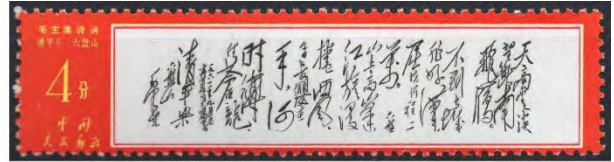 毛主席诗词
清平乐·六盘山
4分
中国
人民邮政
天高云淡
望断南
飞雁
不到长城
非好汉
屈指行程二
万
六盘
山上高峰
红旗漫
卷西风
今日长缨在
手何
时缚住
苍龙
清平乐
六盘山
毛泽东